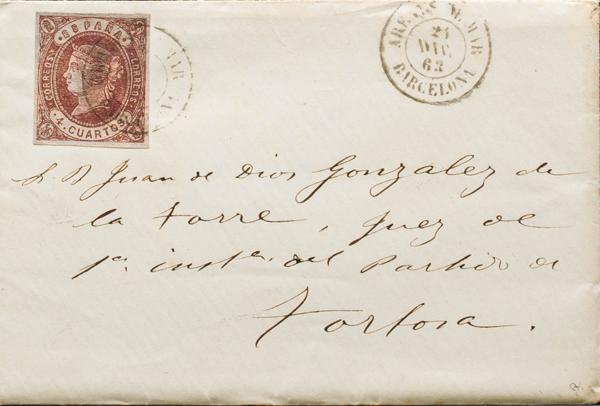 ESPAÑA
CORREOS
CORREOS
4. CUARTOS
ARENYS DE MAR
21
DIC
63
BARCELONA
MAR
S. D. Juan de Dios Gonzalez de
la Torre, Juez de
1ª. instª. del Partido de
Tortosa.